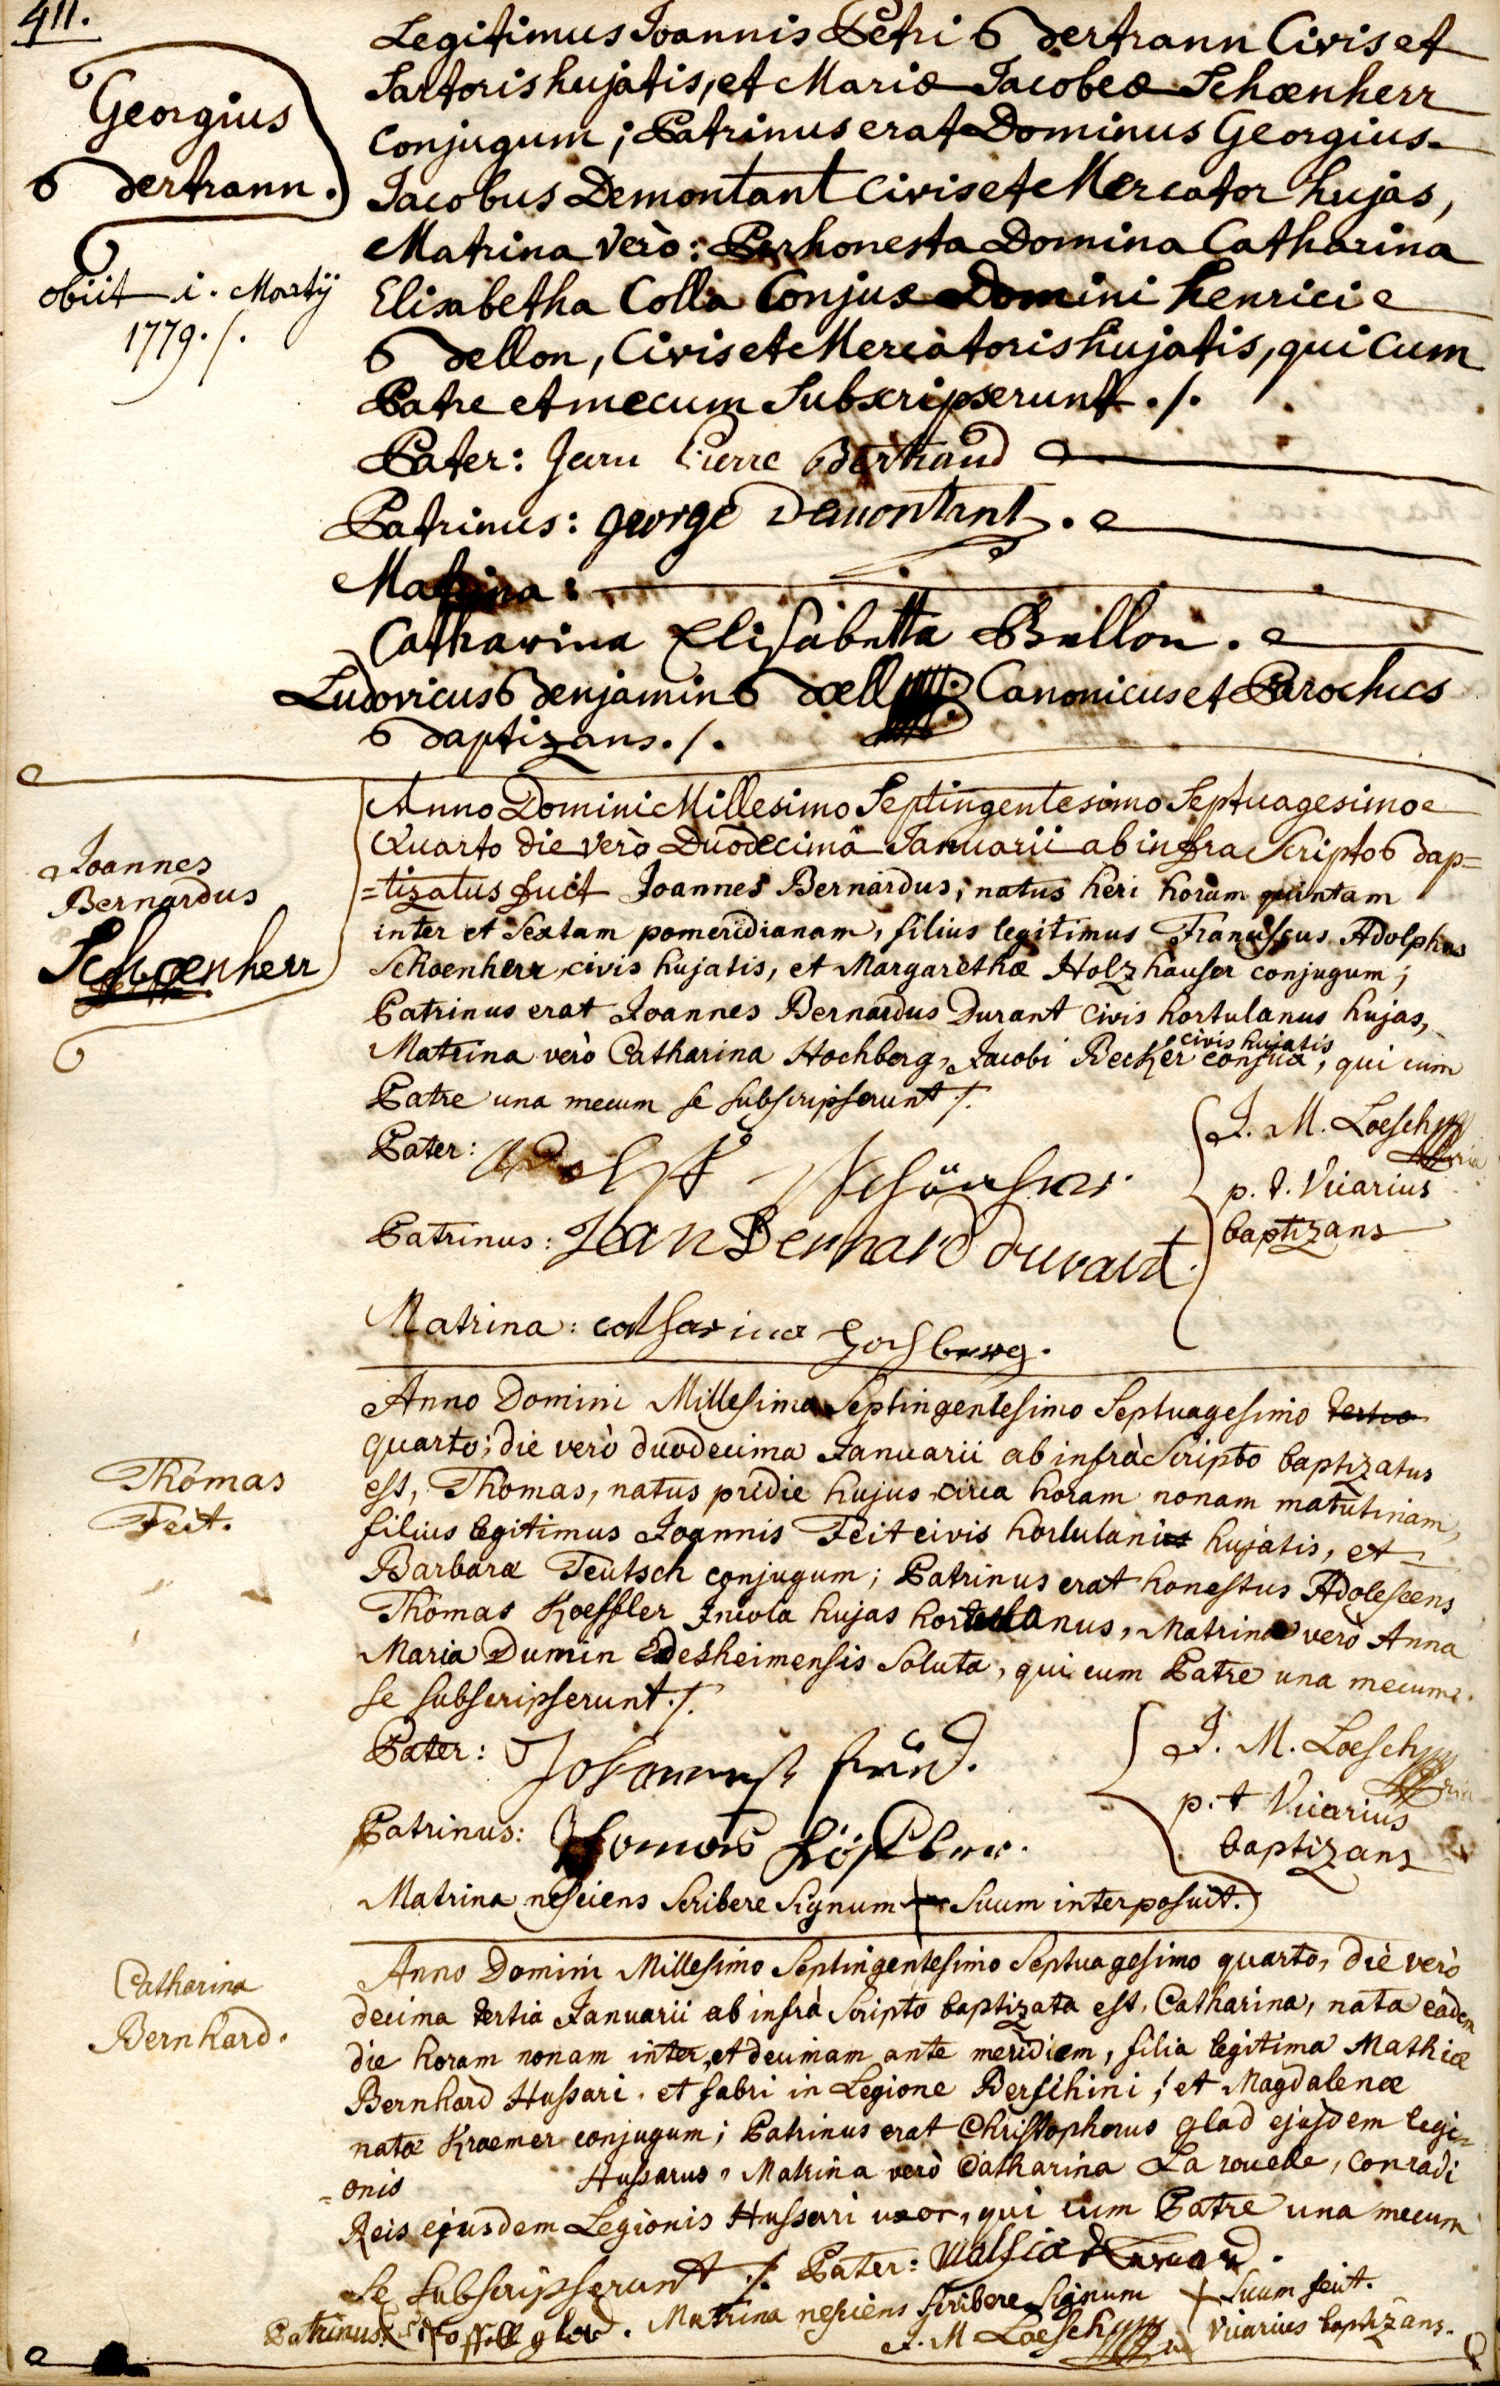 411.
Georgius
Bertrann.
obiit 1. Martÿ
1779./.
Legitimus Joannis Petri Bertrann Civis et
Sartoris hujatis, et Mariæ Jacobeæ Schœnherr
Conjugum; Patrinus erat Dominus Georgius
Jacobus Demontant Civis et Mercator hujas,
Matrina verò: Perhonesta Domina Catharina
Elisabetha Colla Conjux Domini Henrici
Bellon, Civis et Mercatoris hujatis, qui cum
Patre et mecum Subscripserunt ./.
Pater: Jean Pierre Bertrand
Patrinus: george Demontant.
Matrina:
Catharina Elisabetta Bellon.
Ludovicus Benjamin Canonicus et Parochus
Baptizans./.
Joannes
Bernardus
Schoenherr
Anno Domini Millesimo Septingentesimo Septuagesimo
Quarto die verò Duodecimâ Januarii ab infra Scripto Bap=
=tizatus fuit Joannes Bernardus, natus heri horam quintam
inter et Sextam pomeridianam, filius legitimus Francisus Adolphus
Schoenherr civis hujatis, et Margarethæ Holzhauser conjugum;
Patrinus erat Joannes Bernardus Durant civis hortulanus hujas,
civis hujatis
Matrina verò Catharina Hochberg, Jacobi Becker conjux, qui cum
Patre una mecum se subscripserunt ./.
Pater: Adolff Schönherr
J. M. Loesch
p. t. Vicarius
baptizans
Patrinus: Jean Bernard durant
Matrina: catharina Hochberg.
Thomas
Feit.
Anno Domini Millesimo Septingentesimo Septuagesimo tertio
quarto; die verò duodecima Januarii ab infrà Scripto baptizatus
est, Thomas, natus pridie hujus circa horam nonam matutinam,
filius legitimus Joannis Feit civis hortulani hujatis, et
Barbaræ Teutsch conjugum; Patrinus erat honestus Adolescens
Thomas Koeffler Incola hujas hortulanus, Matrina verò Anna
Maria Dumin Edesheimensis Soluta, qui cum Patre una mecum
se subscripserunt ./.
Pater: Johannes
J. M. Loesch
p. t Vicarius
baptizans
Patrinus: Thomas
Matrina nesciens Scribere Signum + Suum interposuit.
Catharina
Bernhard.
Anno Domini Millesimo Septingentesimo Septuagesimo quarto, die verò
decima tertia Januarii ab infrà Scripto baptizata est, Catharina, nata eâdem
die horam nonam inter et decimam ante meridiem, filia legitima Mathiæ
Bernhard Hussari et fabri in Legione Berschini, et Magdalenæ
natæ Kraemer conjugum; Patrinus erat Christophorus glad ejusdem legi=
=onis Hussarus, Matrina verò Catharina La rouelle, Conradi
Reis ejusdem Legionis Hussari uxor, qui cum Patre una mecum
se subscripserunt ./. Pater:
Patrinus: glad. Matrina nesciens Scribere Signum + Suum fecit.
J. M Loesch Vicarius baptizans.